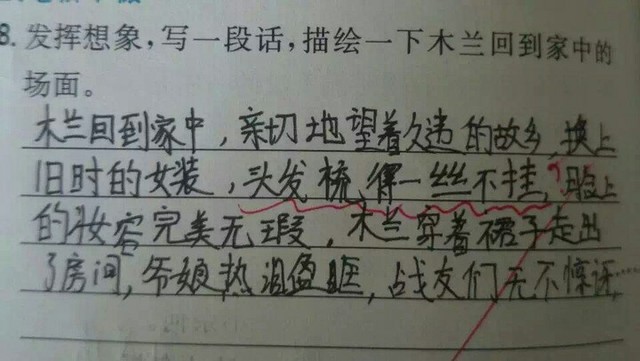 8. 发挥想象，写一段话，描绘一下木兰回到家中的
场面。
木兰回到家中，亲切地望着久违的故乡，换上
旧时的女装，头发梳得一丝不挂，脸上
的妆容完美无瑕，木兰穿着裙子走出
了房间，爷娘热泪盈眶，战友们无不惊讶……